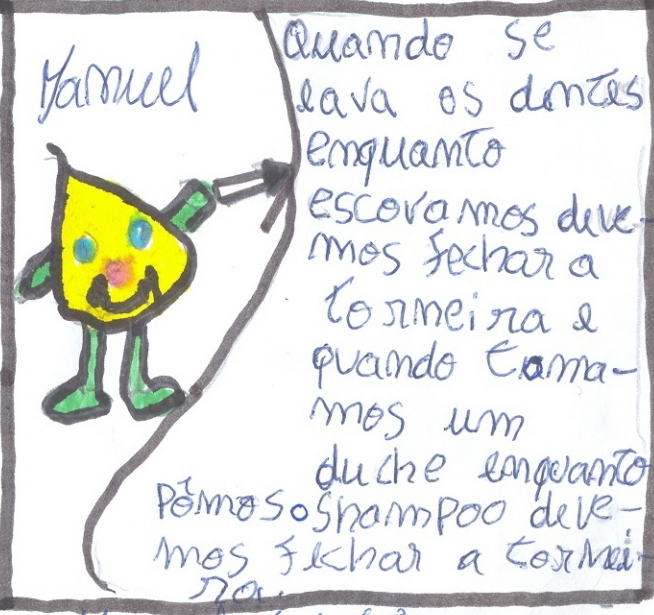 Manuel
Quando se
lava os dentes
enquanto
escovamos deve-
mos fechar a
torneira e
quando toma-
mos um
duche enquanto
pômos o shampoo deve-
mos fechar a tornei-
ra.